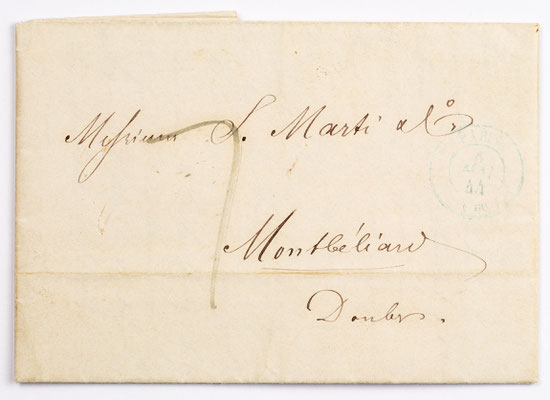 Messieurs S. Marti et Cº
7
Montbéliard
Doubs.
44